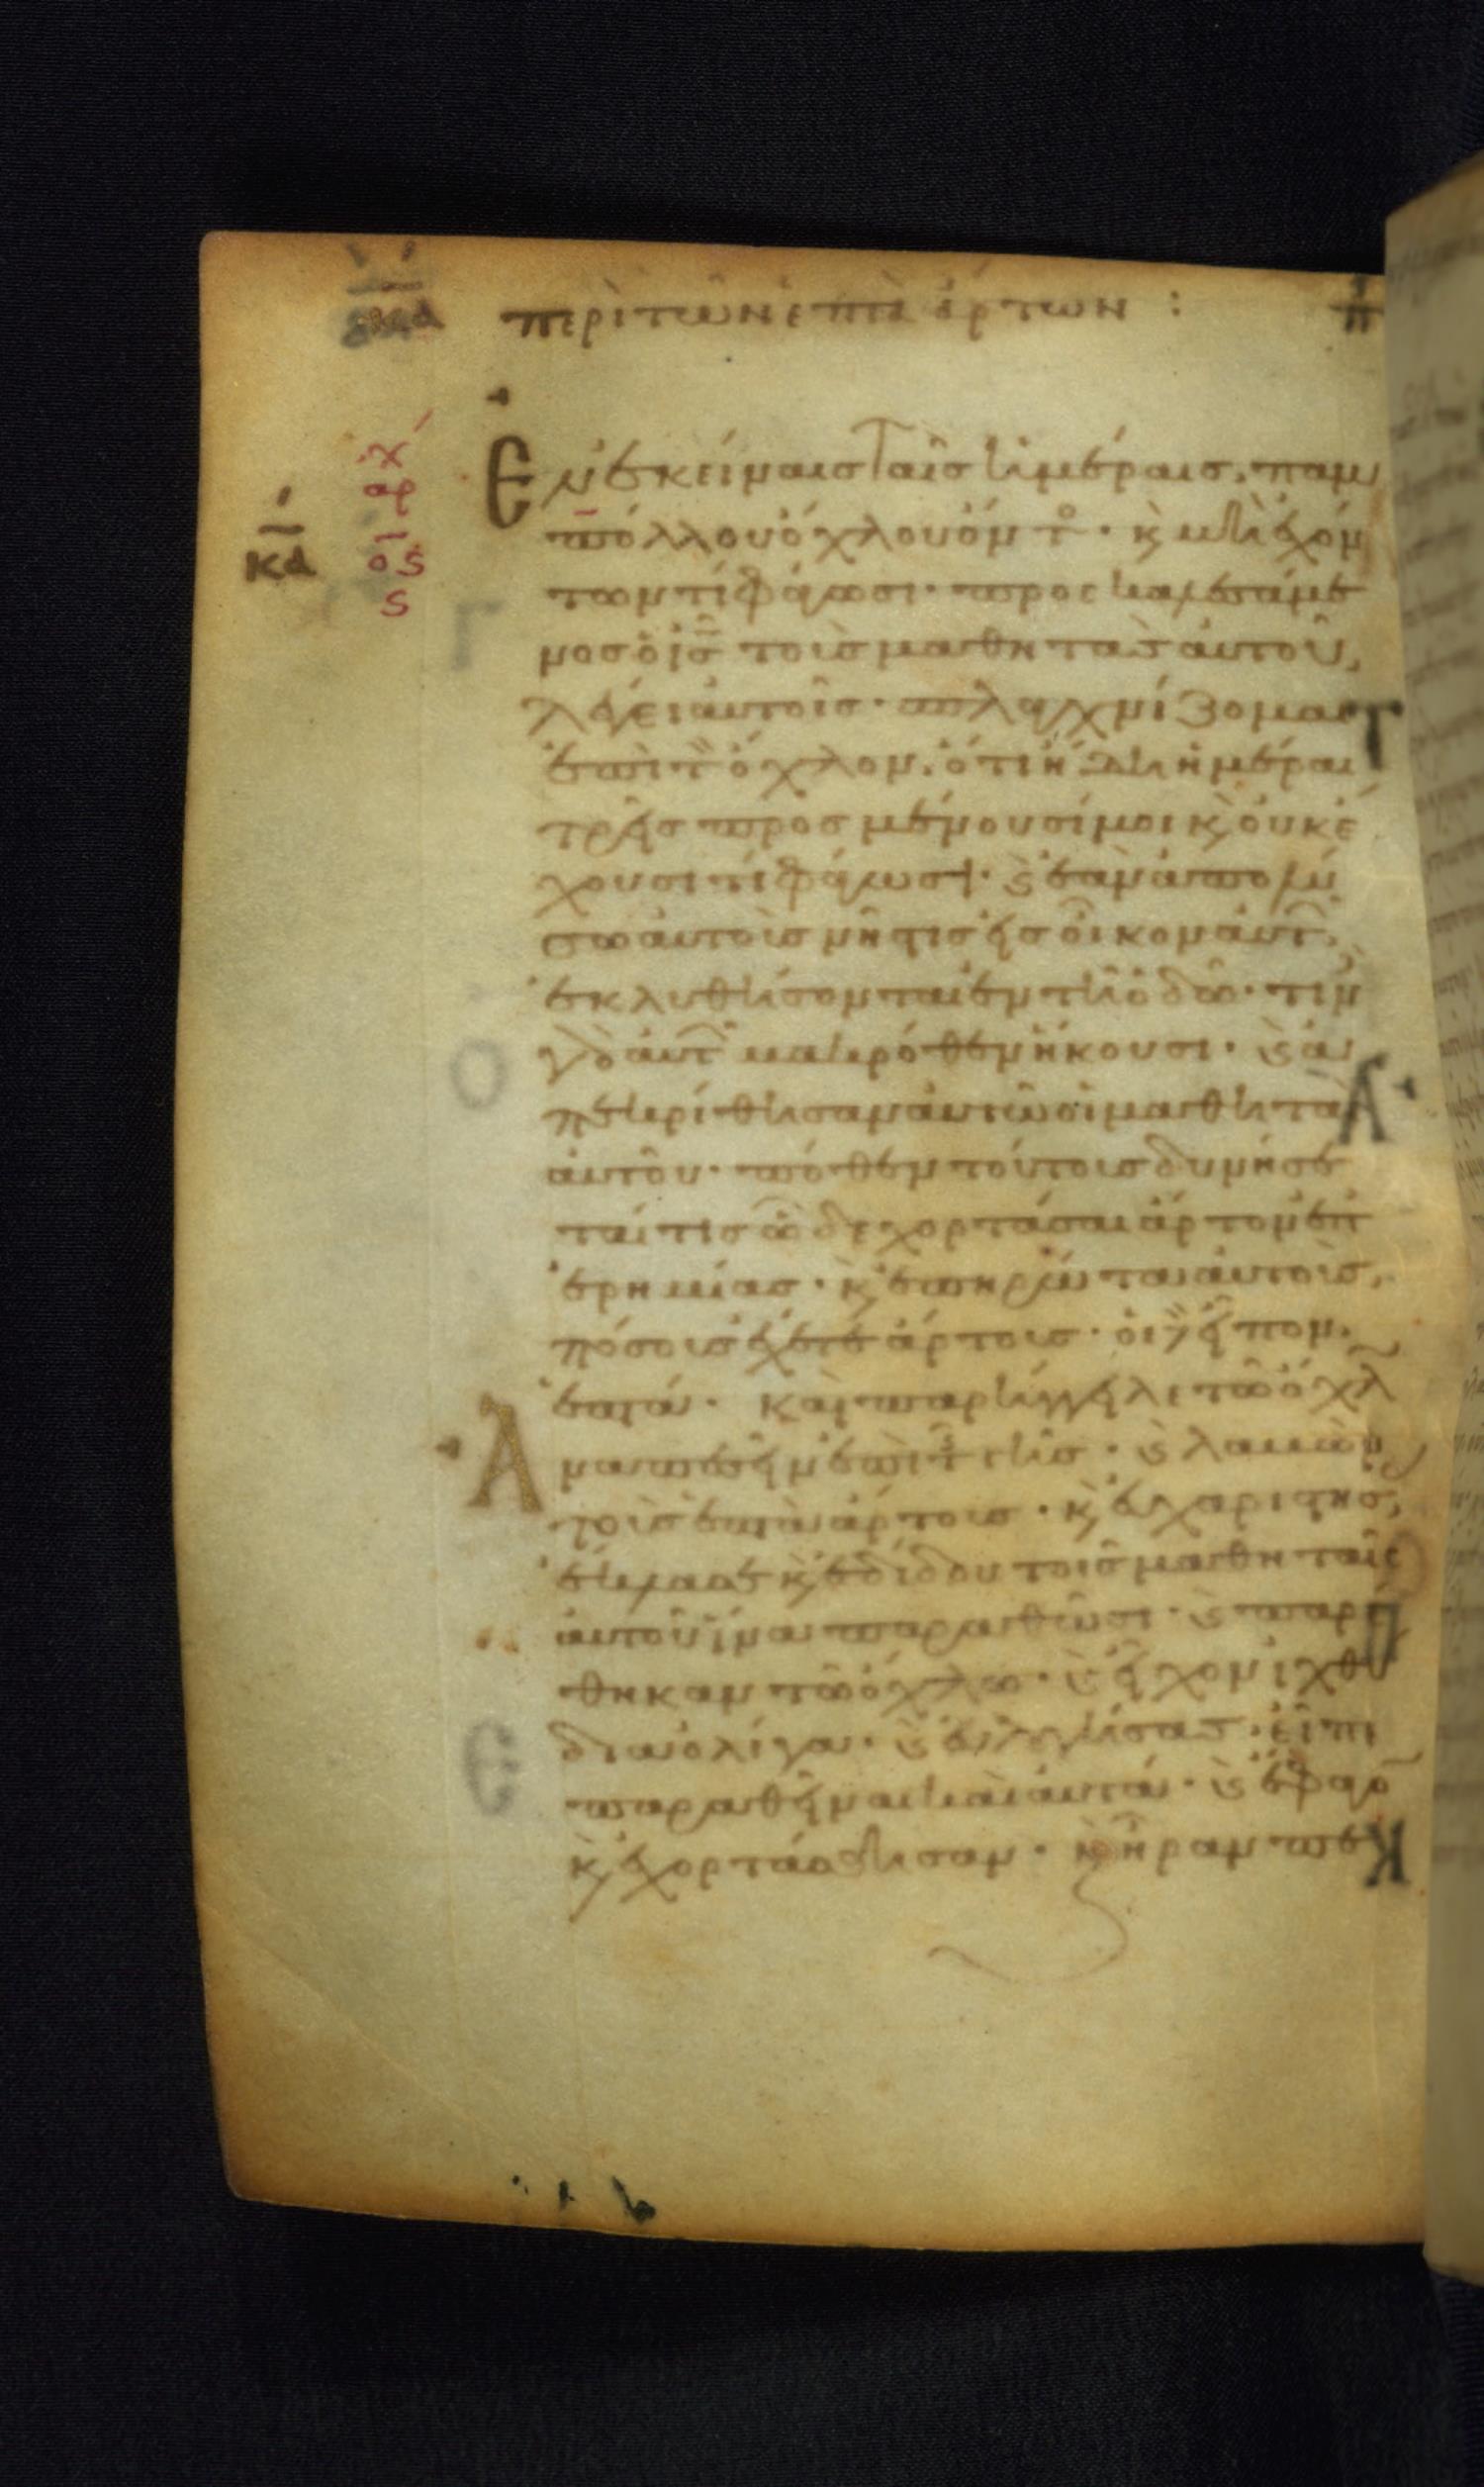 περὶ τῶν ἑπτὰ ἄρτων :
Ἐν ἐκείναις ταῖς ἡμέραις, παμ
πόλλου ὄχλου ὄντ(ο) · κ(αὶ) μὴ ἐχόν
των τί φάγωσι · προσκαλεσάμε
νος ὁ ἰς τοὺς μαθητὰς αὐτοῦ,
λέγει αὐτοῖς · σπλαγχνίζομαι
ἐπὶ τ(ὸν) ὄχλον. ὅτι ἤδη ἡμέραι
τρεῖς προσμένουσί μοι κ(αὶ) οὐκ ἔ
χουσι τί φάγωσι · κ(αὶ) ἐὰν ἀπολύ
σω αὐτοὺς νήστις εἰς οἶκον αὐτ(ῶν),
ἐκλυθήσονται ἐν τῆ ὁδῶ · τινὲ(ς)
γὰρ αὐτ(ῶν) μακρόθεν ἥκουσι · κ(αὶ) ἀ
πεκρίθησαν αὐτῶ οἱ μαθηταὶ
αὐτοῦ · πόθεν τούτους δυνήσε
ταί τις ὧδε χορτάσαι ἄρτον ἐπ
ἐρημίας · κ(αὶ) ἐπηρώτα αὐτοὺς,
πόσους ἔχετε ἄρτους · οἱ δὲ εἶπον.
ἑπτά · καὶ παρήγγειλε τῶ ὄχλ(ω)
ἀναπεσεῖν ἐπὶ τ(ῆς) γῆς · κ(αὶ) λαβὼν
τοὺς ἑπτὰ ἄρτους · κ(αὶ) εὐχαριστήσ(ας)
ἔκλασε κ(αὶ) ἐδίδου τοῖς μαθηταῖς
αὐτοῦ ἵνα παραθῶσι · κ(αὶ) παρέ
θηκαν τῶ ὄχλω · κ(αὶ) εἶχον ἰχθύ
δια ὀλίγα · κ(αὶ) εὐλογήσας · εἶπε
παραθεῖναι καὶ αὐτά · κ(αὶ) ἔφαγο(ν)
κ(αὶ) ἐχορτάσθησαν · κ(αὶ) ἦραν πε
κα